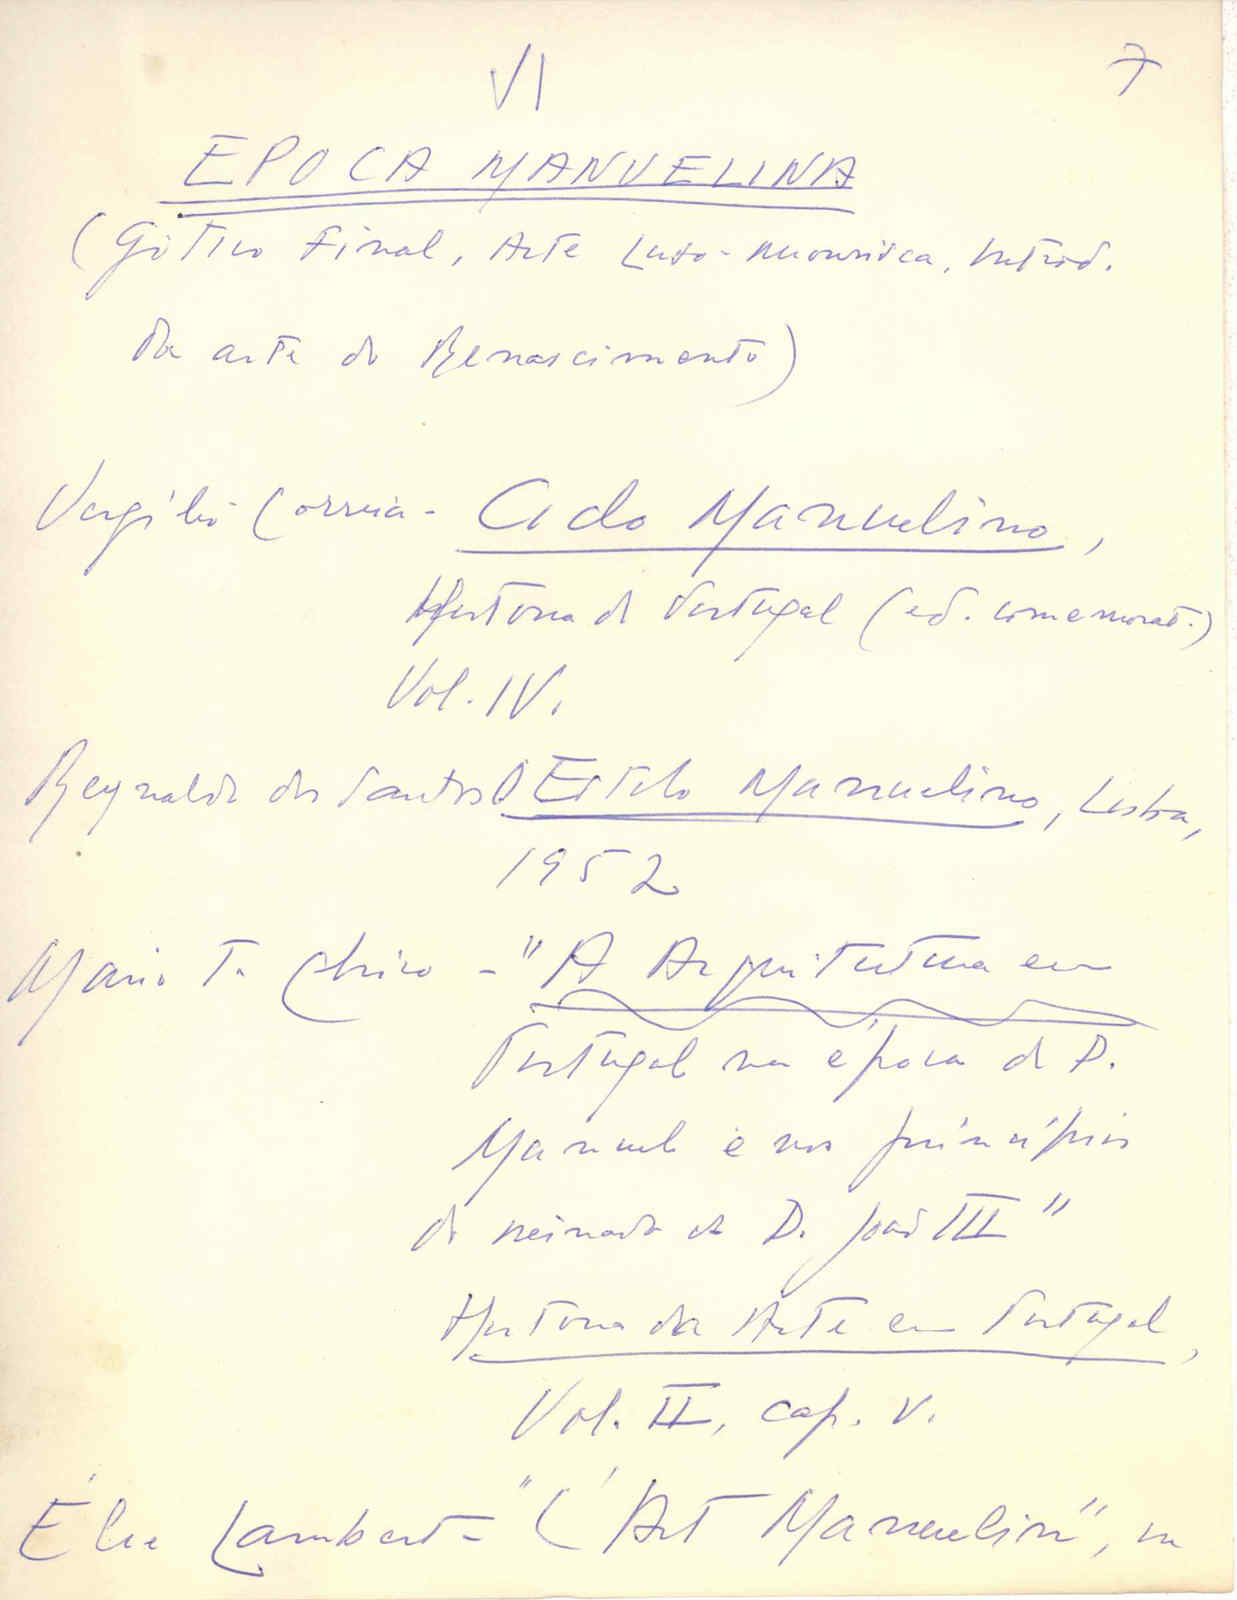 VI
7
EPOCA MANUELINA
(Gótico Final, Arte Luso-mourisca, Introd.
da arte do Renascimento)
Vergílio Correia - Ciclo Manuelino,
História de Portugal (ed. comemorat.)
Vol. IV.
Reynaldo dos Santos O Estilo Manuelino, Lisboa,
1952
Mario T. Chico - "A Arquitectura em
Portugal na época de D.
Manuel e nos princípios
do reinado de D. João III"
História da Arte em Portugal,
Vol. II, cap. V.
Élie Lambert - "L'Art Manuelin", in